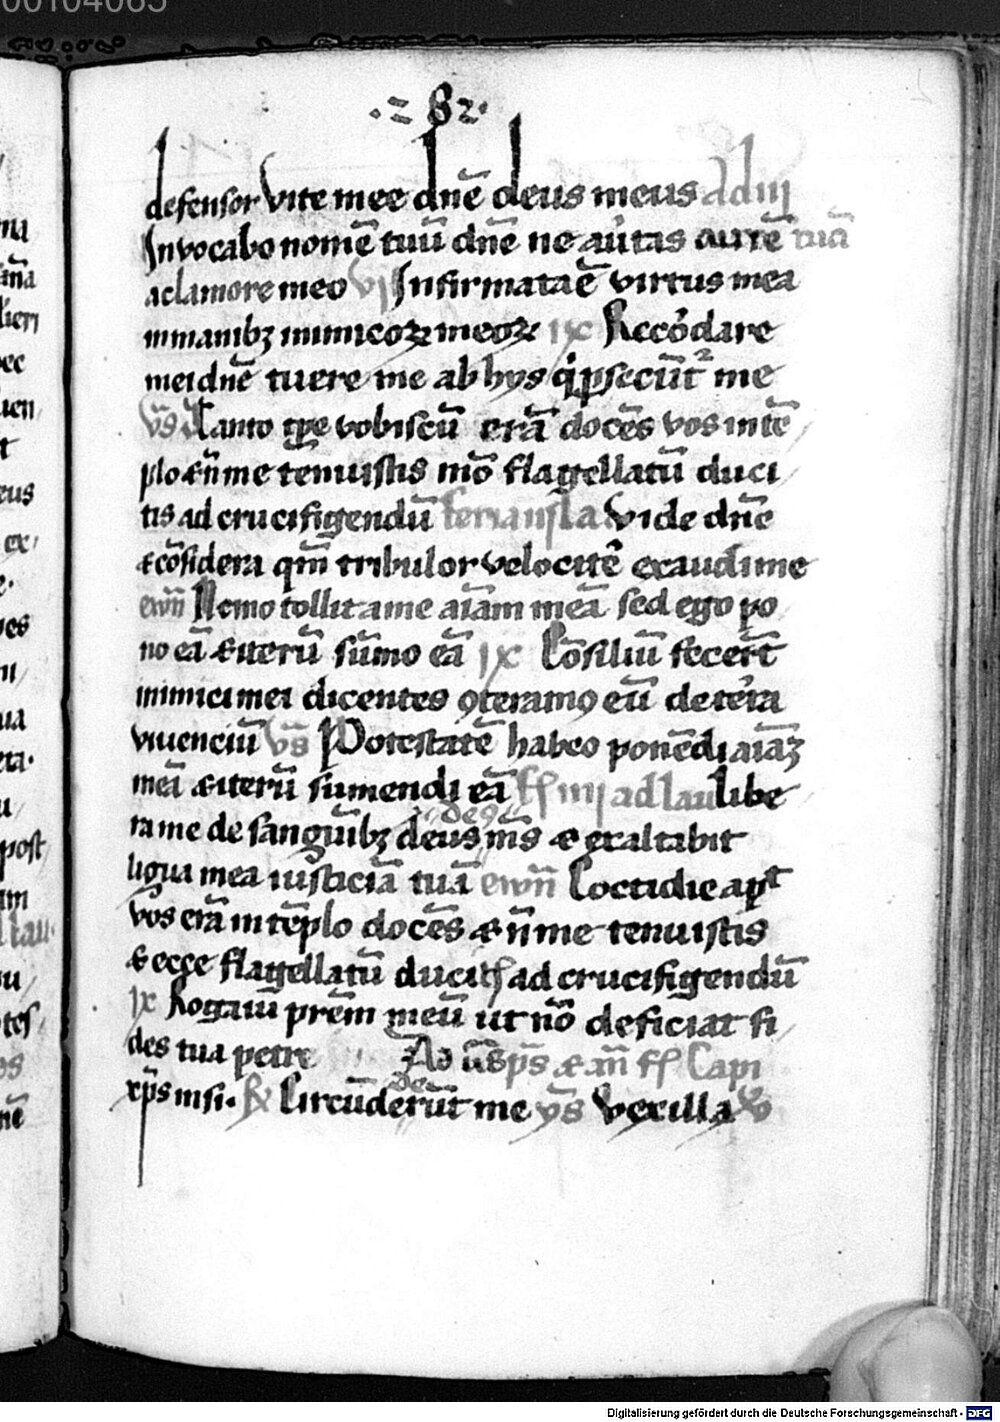 00104085
·282·
defensor vite mee dn̄e deus meus ad iij
Invocabo nomē tuū dn̄e ne aūtas aurē tuā
a clamore meo vj Infirmata ē virtus mea
in manibꝫ inimicoꝝ meoꝝ ix Recōdare
mei dn̄e tuere me ab hys q̇ ꝑsecūt᷑ me
v̄s Tanto tꝑe vobiscū erā docēs vos in tē
plo ⁊ n̄ me tenuistis mō flagellatū duci
tis ad crucifigendū feria iij la Vide dn̄e
⁊ cōsidera qm̄ tribulor velocitē exaudi me
ewn̄ Nemo tollit a me aīam meā sed ego po
no eā ⁊ iterū sūmo eā ix Cōsiliū fecerūt
inimici mei dicentes ꝯteramꝯ eū de tēra
viuenciū v̄s Potestatē habeo ponēdi aīaꝫ
meā ⁊ iterū sumendi eā ff iiij ad lau libe
ra me de sanguībꝫ deus de9 m̄s ⁊ exaltabit
līgua mea iusticiā tuā ewn̄ Coctidie apᵗ
vos erā in tēplo docēs ⁊ n̄ me tenuistis
⁊ ecce flagellatū ducitis ad crucifigendū
ix Rogaui prēm meū ut nō deficiat fi
des tua petre Ad v̄sp̄s ⁊ an̄ ff Capi
xp̄s nisi· ℟ Circūdederūt me v̄s Vexilla
Digitalisierung gefördert durch die Deutsche Forschungsgemeinschaft - DFG